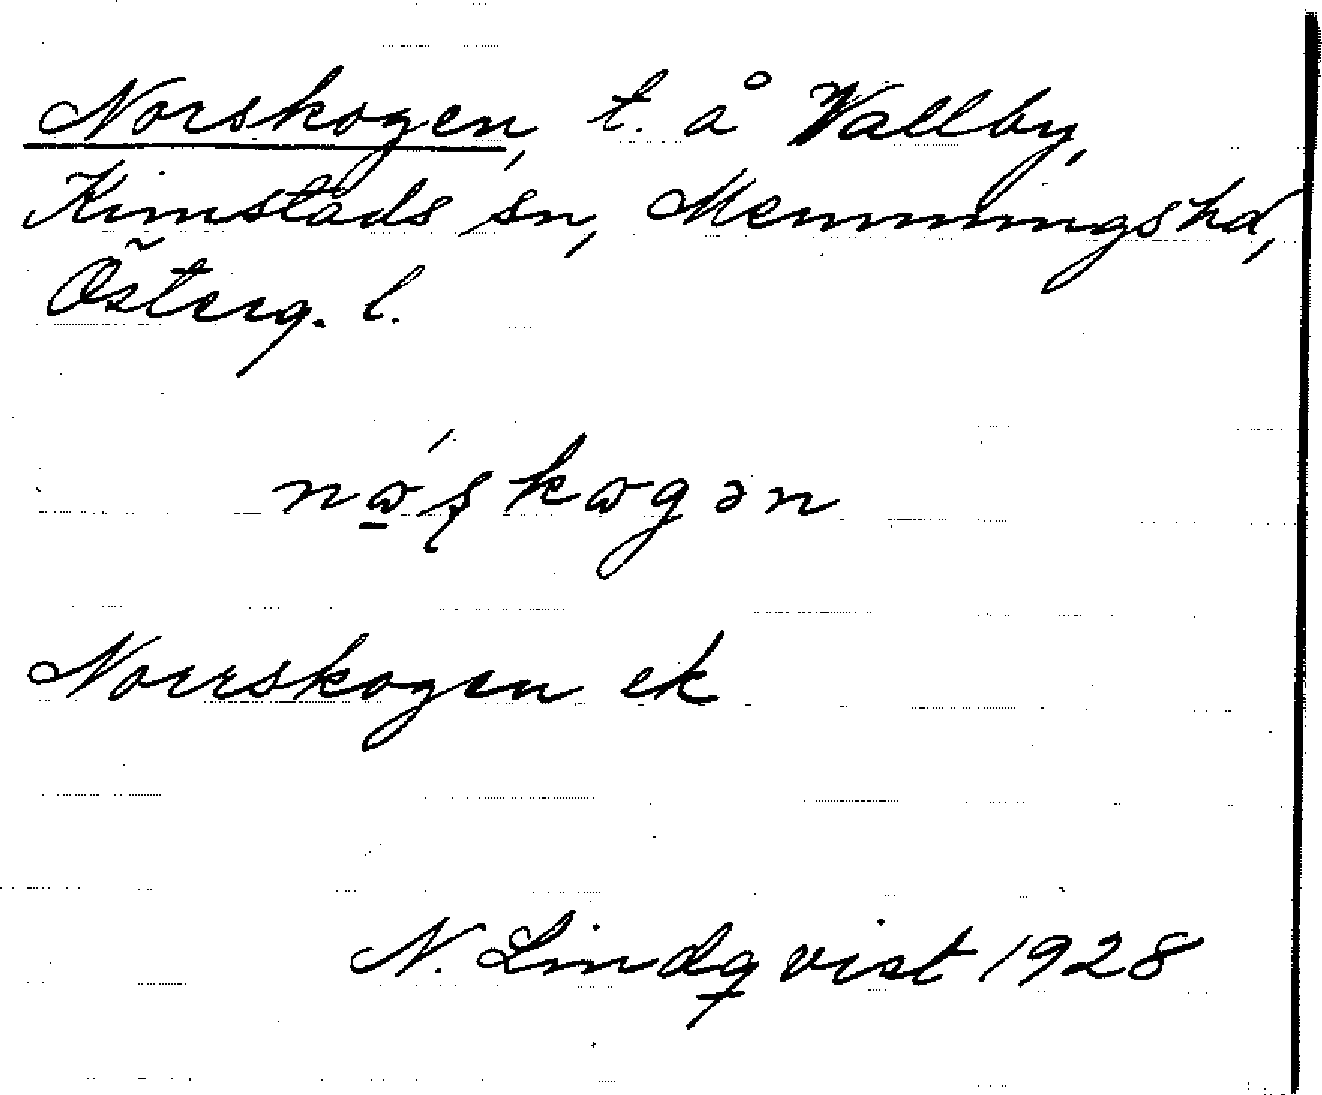 Norskogen, t. å Vallby,
Kimstads sn, Memmingshd,
Österg. l.
nώ̲ʂkωgən
Norrskogen ek
N. Lindqvist 1928